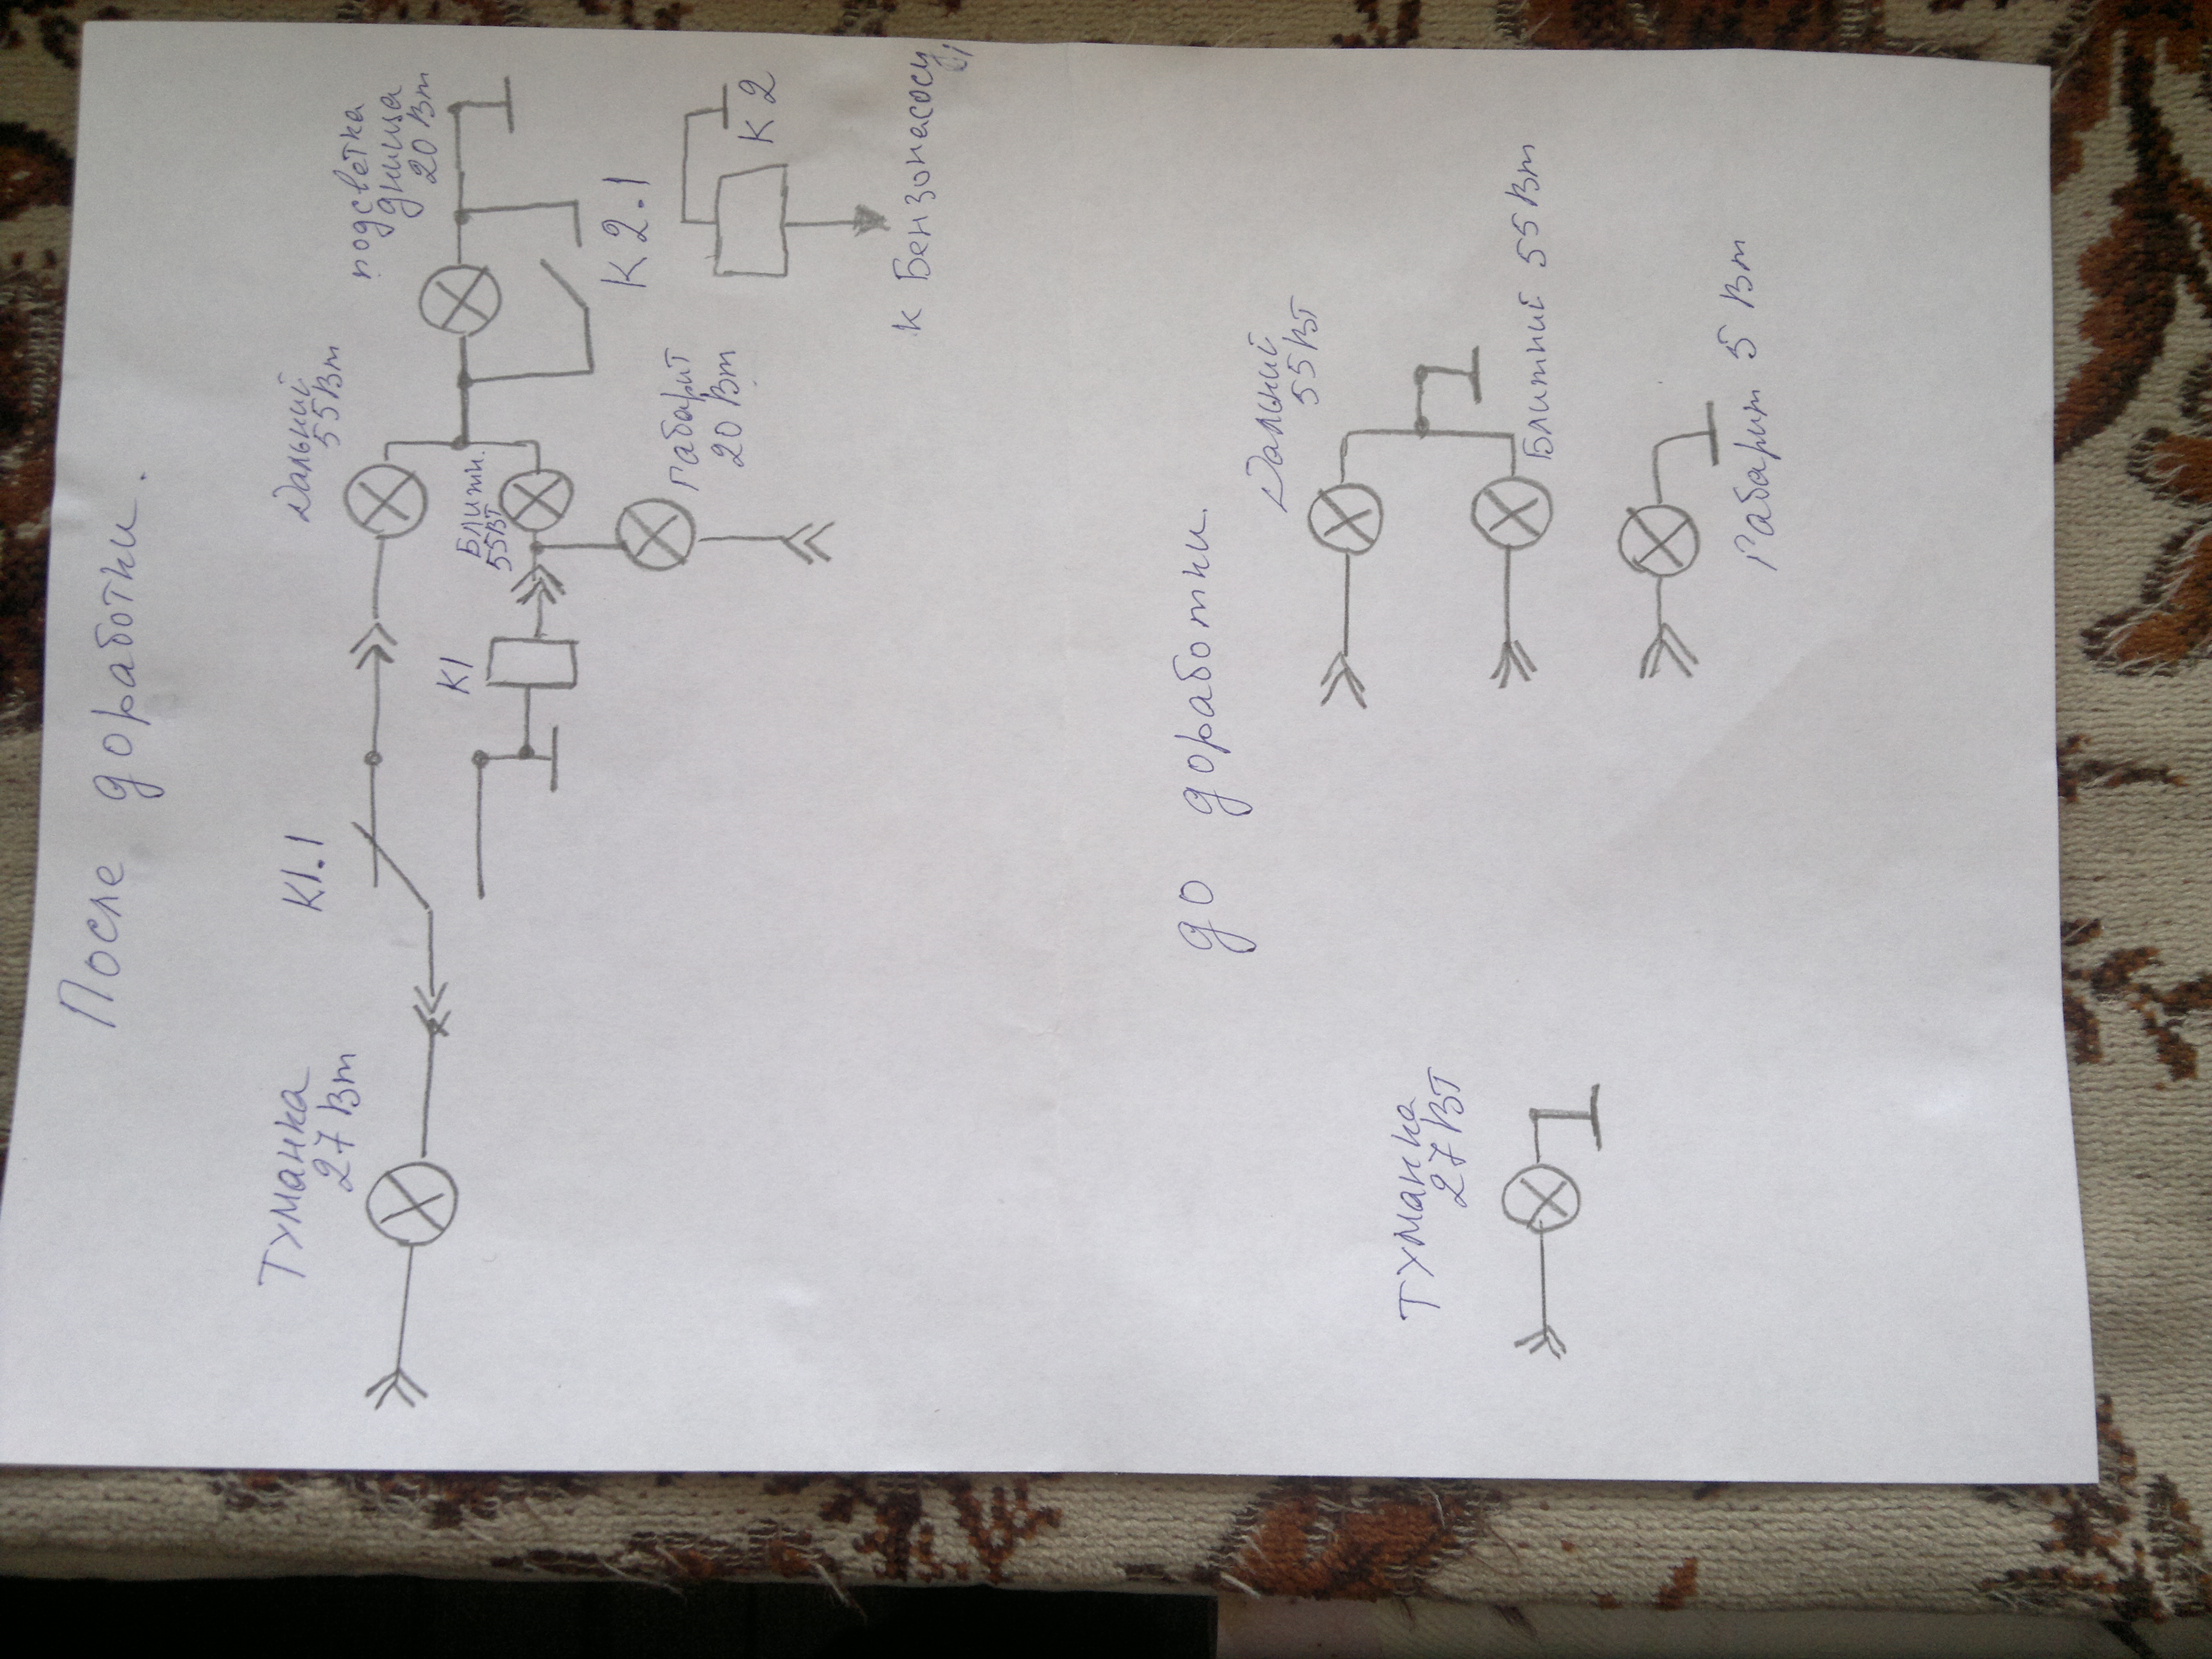 После доработки.
Туманка
27 Вт
К1.1
К1
Дальний
55Вт
Ближн.
55Вт
Габарит
20 Вт
подсветка
днища
20 Вт
К2.1
К2
к Бензонасосу
до доработки.
Туманка
27 Вт
Дальний
55Вт
Ближний 55Вт
Габарит 5 Вт